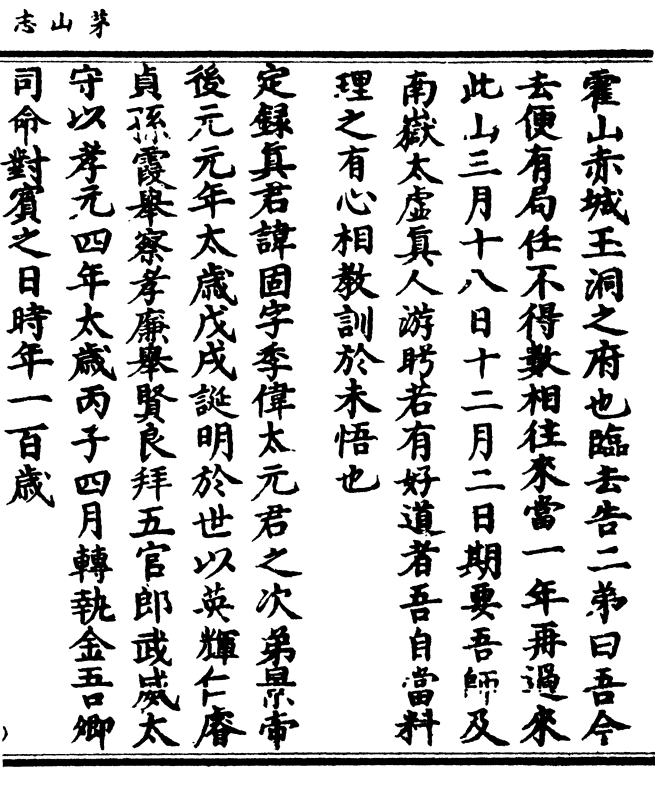 茅山志
霍山赤城玉洞之府也臨去告二弟曰吾今
去便有局任不得數相往來當一年再過來
此山三月十八日十二月二日期要吾師及
南嶽太虛真人游盻若有好道者吾自當料
理之有心相教訓於未悟也
定錄真君諱固字季偉太元君之次弟景帝
後元元年太歲戊戌誕明於世以英輝仁睿
貞孫霞舉察孝廉舉賢良拜五官郎武威太
守以孝元四年太歲丙子四月轉執金吾卿
司命對賓之日時年一百歲